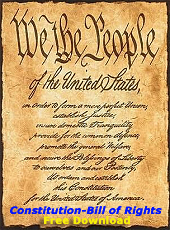 We the People
of the United States,
in order to form a more perfect Union,
establish justice,
insure domestic Tranquility
provide for the common defence,
promote the general Welfare,
and secure the Blessings of Liberty
to ourselves and our Posterity,
do ordain and establish
this Constitution
for the United States of America.
Constitution-Bill of Rights
Free Download